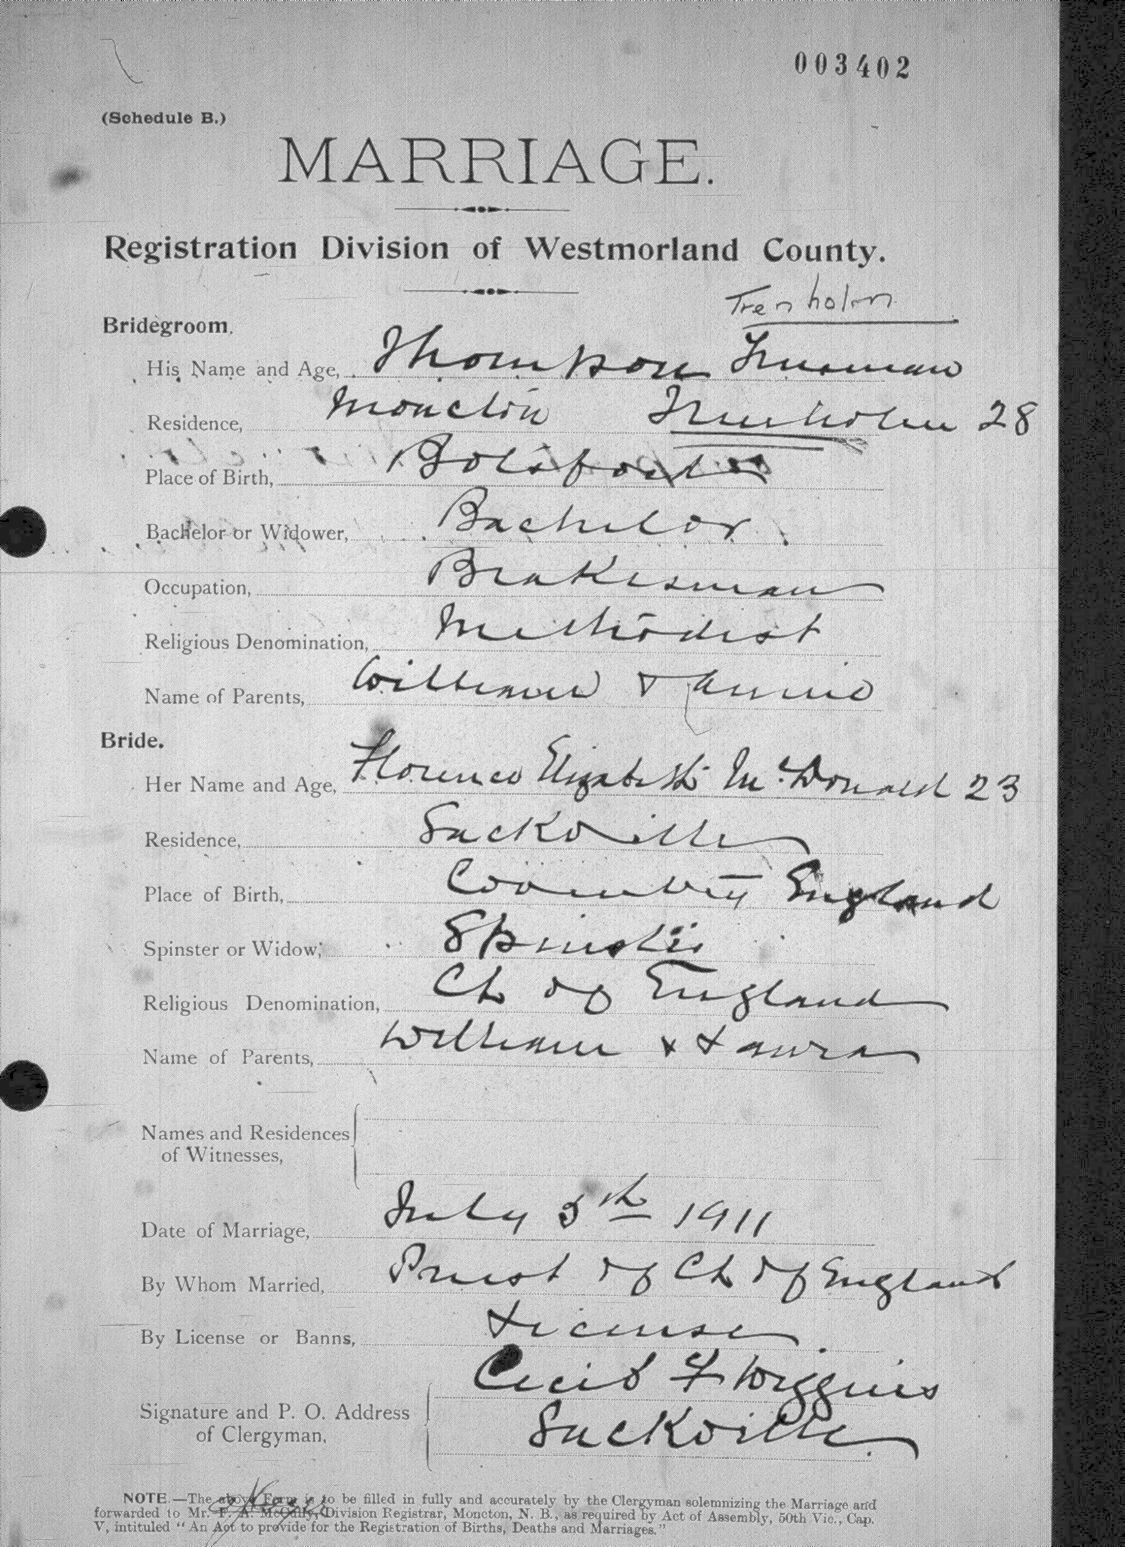 003402
(Schedule B.)
MARRIAGE.
Registration Division of Westmorland County.
Trenholm
Bridegroom.
His Name and Age, Thompson Trueman
Residence, Moncton Trenholm 28
Place of Birth, Botsford
Bachelor or Widower, Bachelor
Occupation, Brakesman
Religious Denomination, Methodist
Name of Parents, William & Annie
Bride.
Her Name and Age, Florence Elizabeth McDonald 23
Residence, Sackville
Place of Birth, Coventry England
Spinster or Widow, Spinster
Religious Denomination, Ch of England
Name of Parents, William & Laura
Names and Residences
of Witnesses,
Date of Marriage, July 5th 1911
By Whom Married, Priest of Ch of England
By License or Banns, License
Cecil F Wiggins
Signature and P. O. Address
of Clergyman, Sackville
NOTE.—The above Form is to be filled in fully and accurately by the Clergyman solemnizing the Marriage and
forwarded to Mr. F. A. McCully, Division Registrar, Moncton, N. B., as required by Act of Assembly, 50th Vic., Cap.
V, intituled "An Act to provide for the Registration of Births, Deaths and Marriages."